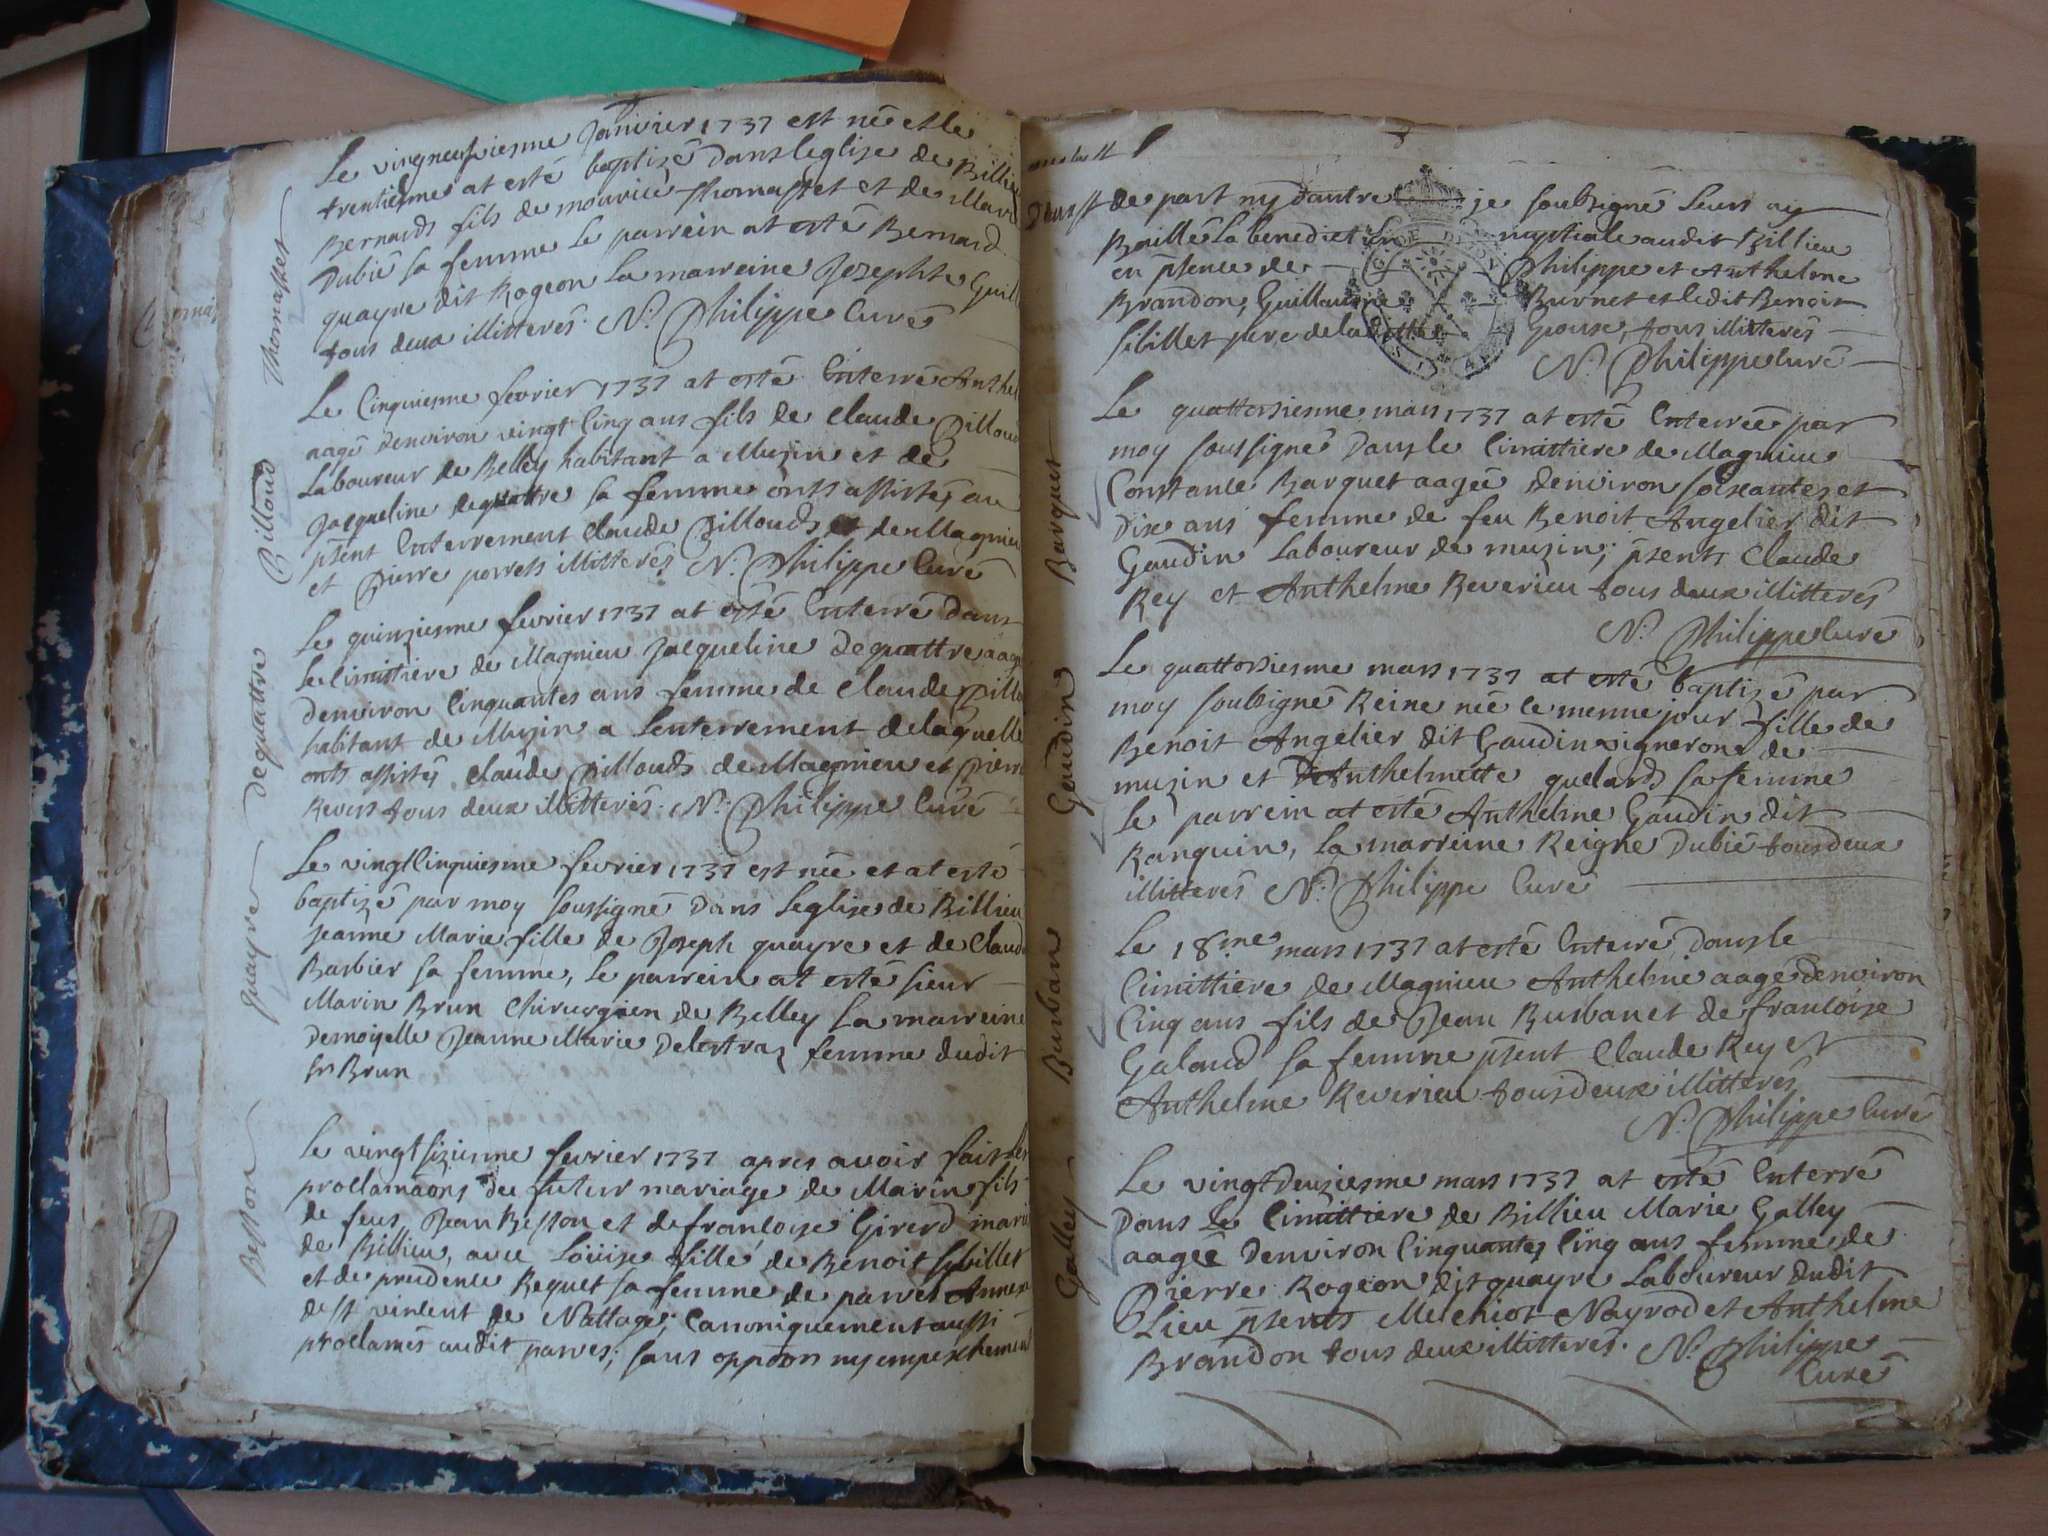 Le vingneufiesme Janvier 1737 est née et le
trentiesme at esté baptizé dans leglise de Billieu
Bernards fils de mourice Thomasset et de Marie
Dubié sa femme le parrein at esté Bernard
quayre dit Rogeon la marreine Jozephte
tous deux illitterés. N. Philippe Curé
Thomasset
Le Cinquiesme fevrier 1737 at esté Enterré Anthel
aagé denviron vingt Cinq ans fils de Claude Pilloud
Laboureur de Belley habitant a Muzin et de
Jacqueline dequattre sa femme onts assistés au
pñent Enterrement Claude Pillouds et de Magnieu
et Pierre porrets illitterés N. Philippe Curé
Billoud
Le quinziesme fevrier 1737 at esté Enterré dans
le Cimittiere de Magnieu Jacqueline Dequattre aagée
denviron Cinquantes ans femme de Claude Pillo
habitant de Muzin a Lenterrement delaquelle
onts assistés Claude Pillouds de Magnieu et Pierre
Revers tous deux illitterés. N. Philippe Curé
Dequattre
Le vingtCinquiesme fevrier 1737 est née et at esté
baptizé par moy soussigné dans Leglise de Billieu
Jeanne Marie fille de Joseph quayre et de Claud
Barbier sa femme, le parrein at esté sieur
Marin Brun Chirurgien de Belley La marreine
Demoizelle Jeanne Marie Delestraz femme dudit
sr Brun
quayre
Le vingtsiziesme fevrier 1737 apres avoir fait les
proclamaõns du futur mariage de Marin fils
de feus Jean Besson et de francoize Girerd marié
de Billieu, avec Loüize fille de Benoit Sybillet
et de prudence Requet sa femme de parroes Annexe
de st vinlent de Nattage; Canoniquement aussi
proclamés audit parroes; sans oppoõn ny empeschement
Besson
de part ny dautre je soubsigné Leurs ay
Baillé La benediction nuptiale audit Billieu
en pñence de Philippe et Anthelme
Brandon, Guillaume Burnet et ledit Benoit
sibillet pere de ladite Epouse, tous illitterés
N. Philippe Curé
Le quattorsiesme mars 1737 at esté Enterrée par
moy soussigné Dans le Cimittiere de Magnieu
Constance Barquet aagée denviron soixantes et
dix ans femme de feu Benoit Angelier dit
Gaudin Laboureur de muzin; pñents Claude
Rey et Anthelme Reverieu tous deux illitterés
N. Philippe Curé
Barquet
Le quattorsiesme mars 1737 at esté baptizé par
moy soubsigné Reine née le meme jour fille de
Benoit Angelier dit Gaudin vigneron de
muzin et DAnthelmette quelards sa femme
Le parrein at esté Anthelme Gaudin dit
Ranquin, la marreine Reigne Dubié tous deux
illitterés N. Philippe Curé
Gaudin
Le 18me mars 1737 at esté Enterré, Dans le
Cimittiere de Magnieu Anthelme aagé denviron
Cinq ans fils de Jean Burban et de francoize
Galand sa femme pñent Claude Rey et
Anthelme Reverieu tous deux illitterés
N. Philippe Curé
Burban
Le vingtdeuziesme mars 1737 at esté Enterré
Dans Le Cimittiere de Billieu Marie Galley
aagée denviron Cinquantes Cinq ans femme de
Pierre Rogeon dit quayre Laboureur dudit
Lieu pñents Melchiot Nayrod et Anthelme
Brandon tous deux illitterés. N. Philippe
Curé
Galley